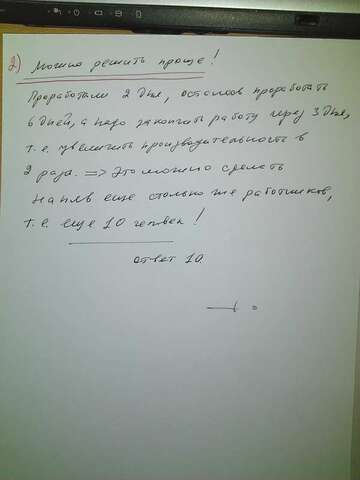 2) Можно решить проще!
Проработали 2 дня, осталось проработать
6 дней, а надо закончить работу через 3 дня,
т.е. увеличить производительность в
2 раза. => Это можно сделать
наняв еще столько же работников,
т.е. еще 10 человек!
ответ 10